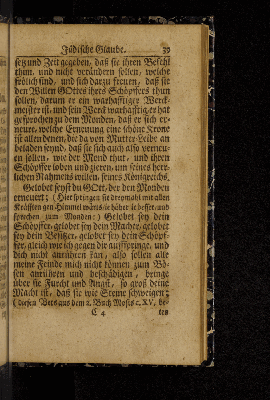 Jüdische Glaube. 39
setz und Zeit gegeben, daß sie ihren Befehl
thun, und nicht verändern sollen, welche
frölich sind, und sich darzu freuen, daß sie
den Willen GOttes ihres Schöpffers thun
sollen, darum er ein warhafftiger Werck-
meister ist, und sein Werck warhafftig; er hat
gesprochen zu dem Monden, daß er sich er-
neure, welche Erneuung eine schöne Krone
ist allen denen, die da von Mutter-Leibe an
beladen seynd, daß sie sich auch also verneu-
en sollen, wie der Mond thut, und ihren
Schöpffer loben und zieren, um seines herr-
lichen Nahmens willen, seines Königreichs.
Gelobet seyst du GOtt, der den Monden
erneuert; (Hier springen sie dreymal mit allen
Kräfften gen Himmel
sprechen zum Monden:) Gelobet sey dein
Schöpffer, gelobet sey dein Macher, gelobet
sey dein Besitzer, gelobet sey dein Schöpf-
fer, gleich wie ich gegen dir auffspringe, und
dich nicht anrühren kan, also sollen alle
meine Feinde mich nicht können zum Bö-
sen anrühren und beschädigen, bringe
über sie Furcht und Angst, so groß deine
Macht ist, daß sie wie Steine schweigen;
(diesen Vers aus dem 2. Buch Mosis c. XV, be-
C 4 ten